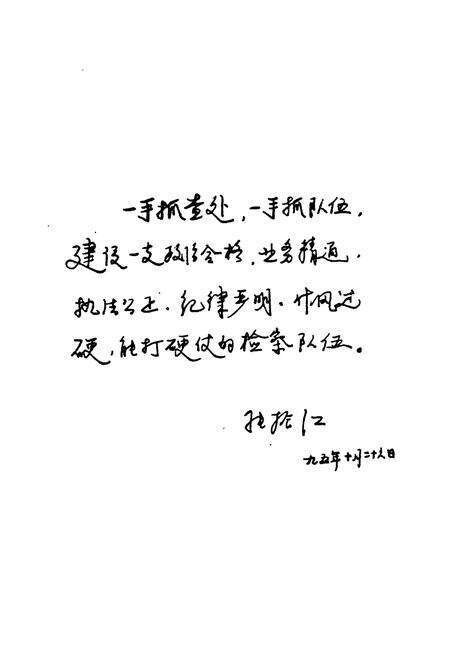 一手抓查处，一手抓队伍，
建设一支政治合格、业务精通、
执法公正、纪律严明、作风过
硬，能打硬仗的检察队伍。
九五年十月二十八日